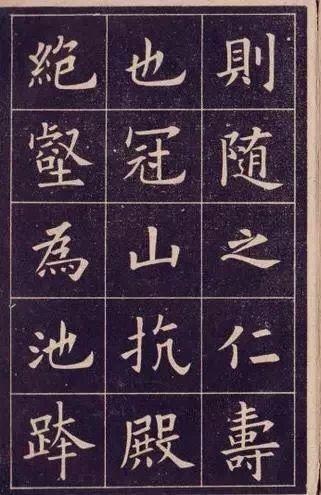 則随之仁壽
也冠山抗殿
絶壑為池跨